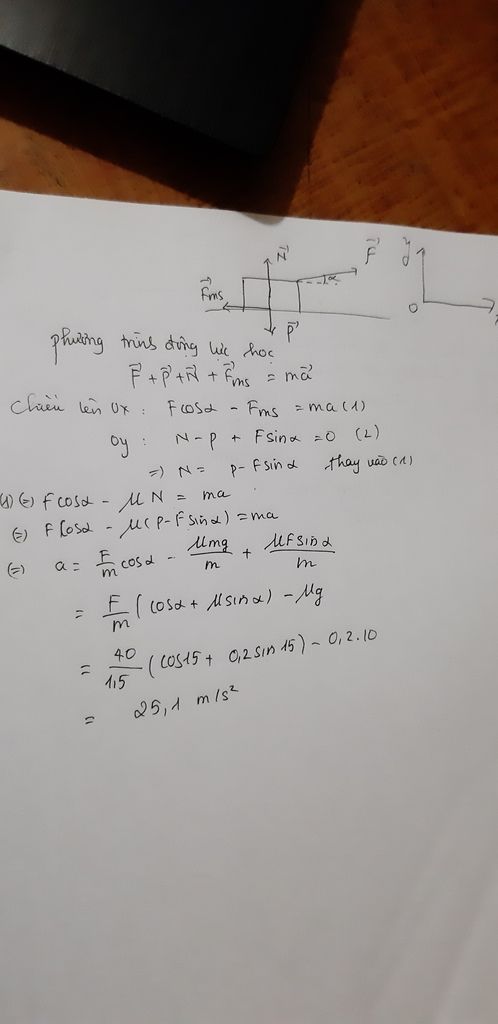 N⃗ F⃗ y
α
F⃗ms O
P⃗
phương trình động lực học
F⃗ + P⃗ + N⃗ + F⃗ms = ma⃗
chiếu lên Ox : Fcosα - Fms = ma (1)
Oy : N - P + Fsinα = 0 (2)
=> N = P - Fsinα thay vào (1)
(1) (=) Fcosα - μN = ma
(=) Fcosα - μ(P - Fsinα) = ma
(=) a = F/m cosα - μmg/m + μFsinα/m
= F/m (cosα + μsinα) - μg
= 40/1,5 (cos15 + 0,2sin15) - 0,2.10
= 25,1 m/s²